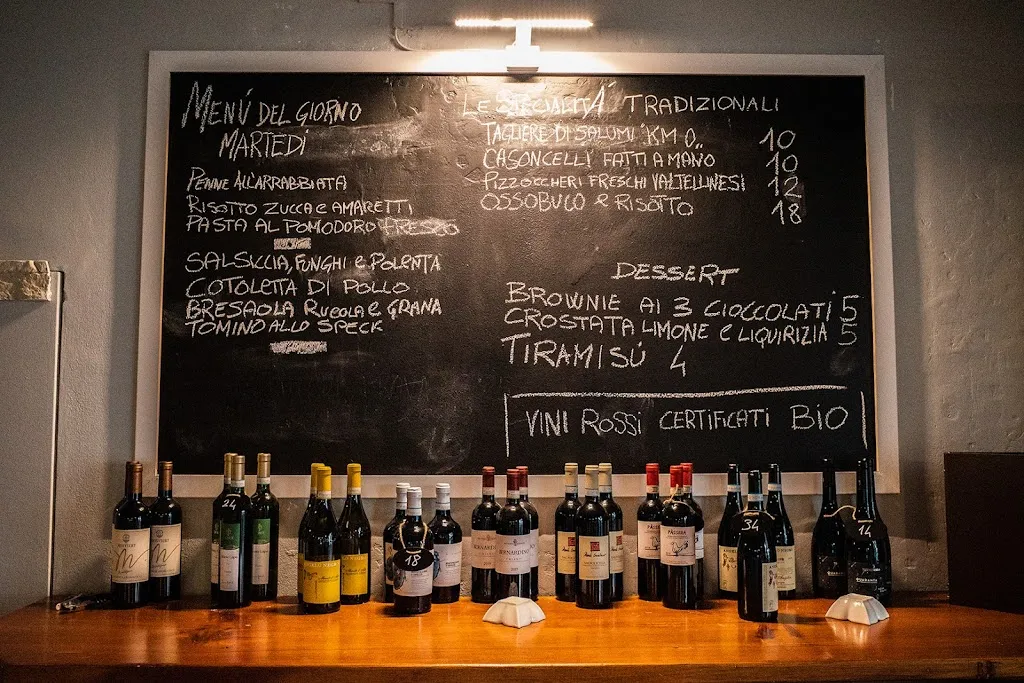 MENÚ DEL GIORNO
MARTEDÍ
PENNE ALL'ARRABBIATA
RISOTTO ZUCCA e AMARETTI
PASTA AL POMODORO FRESCO
SALSICCIA, FUNGHI e POLENTA
COTOLETTA DI POLLO
BRESAOLA RUCOLA e GRANA
TOMINO ALLO SPECK
LE SPECIALITÀ TRADIZIONALI
TAGLIERE DI SALUMI "KM 0" 10
CASONCELLI FATTI A MANO 10
PIZZOCCHERI FRESCHI VALTELLINESI 12
OSSOBUCO e RISOTTO 18
DESSERT
BROWNIE AI 3 CIOCCOLATI 5
CROSTATA LIMONE e LIQUIRIZIA 5
TIRAMISÚ 4
VINI ROSSI CERTIFICATI BIO
24
18
34
14
BERNARDINO
PÀSSERA